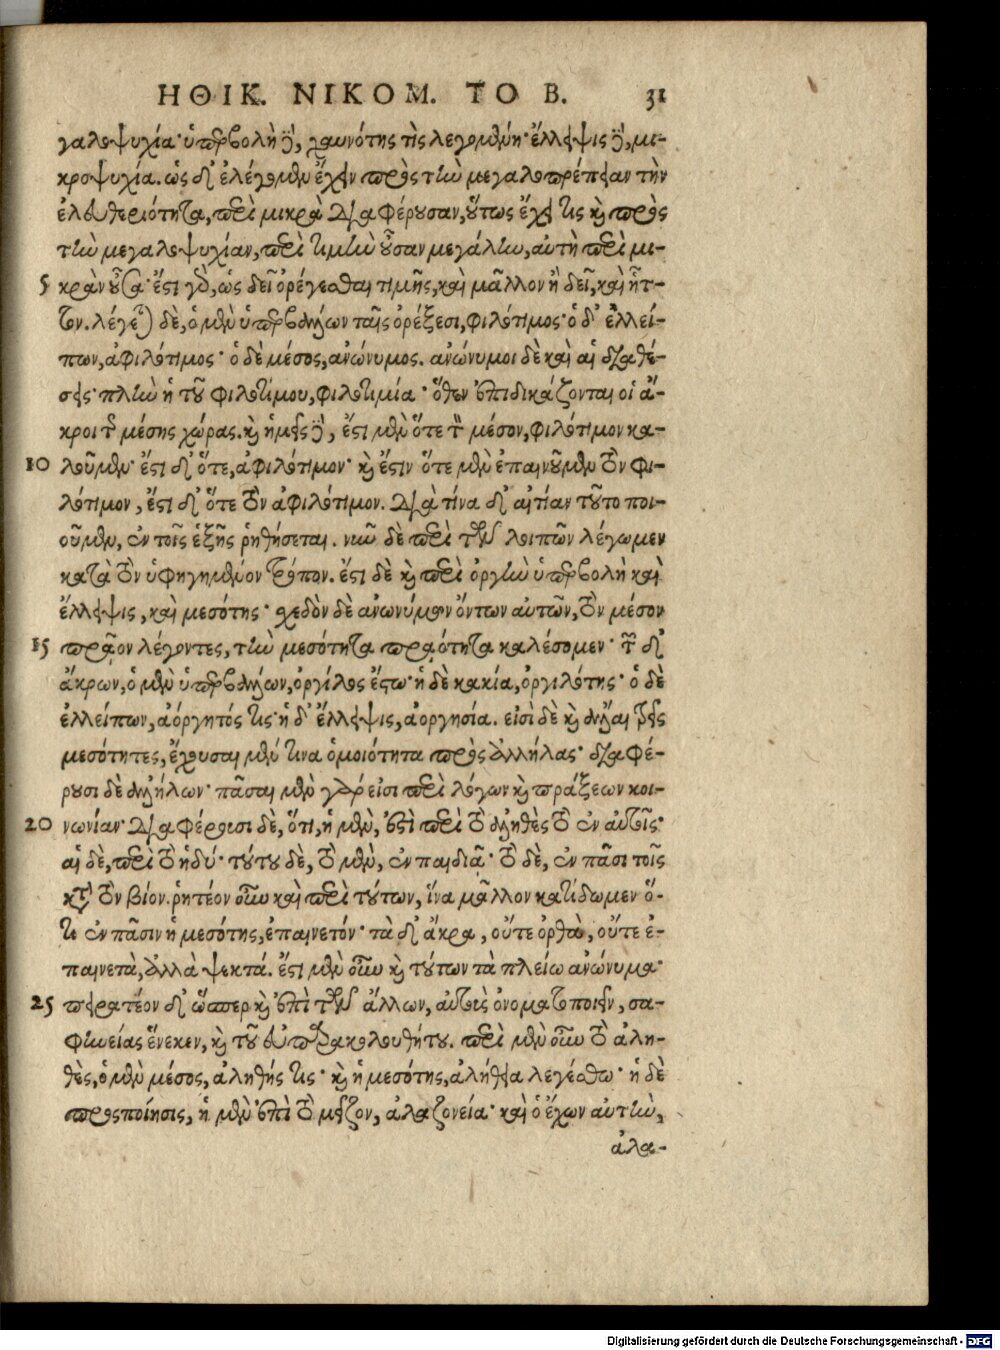 ΗΘΙΚ. ΝΙΚΟΜ. ΤΟ Β. 31
γαλοψυχία· ὑπερβολὴ δὲ, χαυνότης τὶς λεγομένη· ἔλλειψις δὲ, μι-
κροψυχία. ὡς δ' ἐλέγομεν ἔχειν πρὸς τὴν μεγαλοπρέπειαν τὴν
ἐλευθεριότητα, περὶ μικρὰ διαφέρουσαν, οὕτως ἔχει τις καὶ πρὸς
τὴν μεγαλοψυχίαν, περὶ τιμὴν οὖσαν μεγάλην, αὐτὴ περὶ μι-
5 κρὰν οὖσα· ἔστι γὰρ, ὡς δεῖ ὀρέγεσθαι τιμῆς, καὶ μᾶλλον ἢ δεῖ, καὶ ἧτ-
τον. λέγεται δὲ, ὁ μὲν ὑπερβάλλων ταῖς ὀρέξεσι, φιλότιμος· ὁ δ' ἐλλεί-
πων, ἀφιλότιμος· ὁ δὲ μέσος, ἀνώνυμος. ἀνώνυμοι δὲ καὶ αἱ διαθέ-
σεις· πλὴν ἡ τοῦ φιλοτίμου, φιλοτιμία· ὅθεν ἐπιδικάζονται οἱ ἄ-
κροι τῆς μέσης χώρας. καὶ ἡμεῖς δὲ, ἔστι μὲν ὅτε τὸν μέσον, φιλότιμον κα-
10 λοῦμεν· ἔστι δ' ὅτε, ἀφιλότιμον· καὶ ἔστιν ὅτε μὲν ἐπαινοῦμεν τὸν φι-
λότιμον, ἔστι δ' ὅτε τὸν ἀφιλότιμον. διὰ τίνα δ' αἰτίαν τοῦτο ποι-
οῦμεν, ἐν τοῖς ἑξῆς ῥηθήσεται. νῦν δὲ περὶ τῶν λοιπῶν λέγωμεν
κατὰ τὸν ὑφηγημένον τρόπον. ἔστι δὲ καὶ περὶ ὀργὴν ὑπερβολὴ καὶ
ἔλλειψις, καὶ μεσότης· σχεδὸν δὲ ἀνωνύμων ὄντων αὐτῶν, τὸν μέσον
15 πρᾶον λέγοντες, τὴν μεσότητα πραότητα καλέσομεν· τῶν δ'
ἄκρων, ὁ μὲν ὑπερβάλλων, ὀργίλος ἔστω· ἡ δὲ κακία, ὀργιλότης· ὁ δὲ
ἐλλείπων, ἀόργητός τις· ἡ δ' ἔλλειψις, ἀοργησία. εἰσὶ δὲ καὶ ἄλλαι τρεῖς
μεσότητες, ἔχουσαι μέν τινα ὁμοιότητα πρὸς ἀλλήλας· διαφέ-
ρουσι δὲ ἀλλήλων· πᾶσαι μὲν γάρ εἰσι περὶ λόγων καὶ πράξεων κοι-
20 νωνίαν· διαφέρουσι δὲ, ὅτι, ἡ μὲν, ἐστὶ περὶ τὸ ἀληθὲς τὸ ἐν αὐτοῖς·
αἱ δὲ, περὶ τὸ ἡδύ· τούτου δὲ, τὸ μὲν, ἐν παιδιᾷ· τὸ δὲ, ἐν πᾶσι τοῖς
κατὰ τὸν βίον. ῥητέον οὖν καὶ περὶ τούτων, ἵνα μᾶλλον κατίδωμεν ὅ-
τι ἐν πᾶσιν ἡ μεσότης, ἐπαινετόν· τὰ δ' ἄκρα, οὔτε ὀρθὰ, οὔτε ἐ-
παινετὰ, ἀλλὰ ψεκτά. ἔστι μὲν οὖν καὶ τούτων τὰ πλείω ἀνώνυμα·
25 πειρατέον δ' ὥσπερ καὶ ἐπὶ τῶν ἄλλων, αὐτοὺς ὀνοματοποιεῖν, σα-
φηνείας ἕνεκεν, καὶ τοῦ εὐπαρακολουθήτου. περὶ μὲν οὖν τὸ ἀλη-
θὲς, ὁ μὲν μέσος, ἀληθής τις· καὶ ἡ μεσότης, ἀλήθεια λεγέσθω· ἡ δὲ
προσποίησις, ἡ μὲν ἐπὶ τὸ μεῖζον, ἀλαζονεία· καὶ ὁ ἔχων αὐτὴν,
ἀλα-
Digitalisierung gefördert durch die Deutsche Forschungsgemeinschaft - DFG